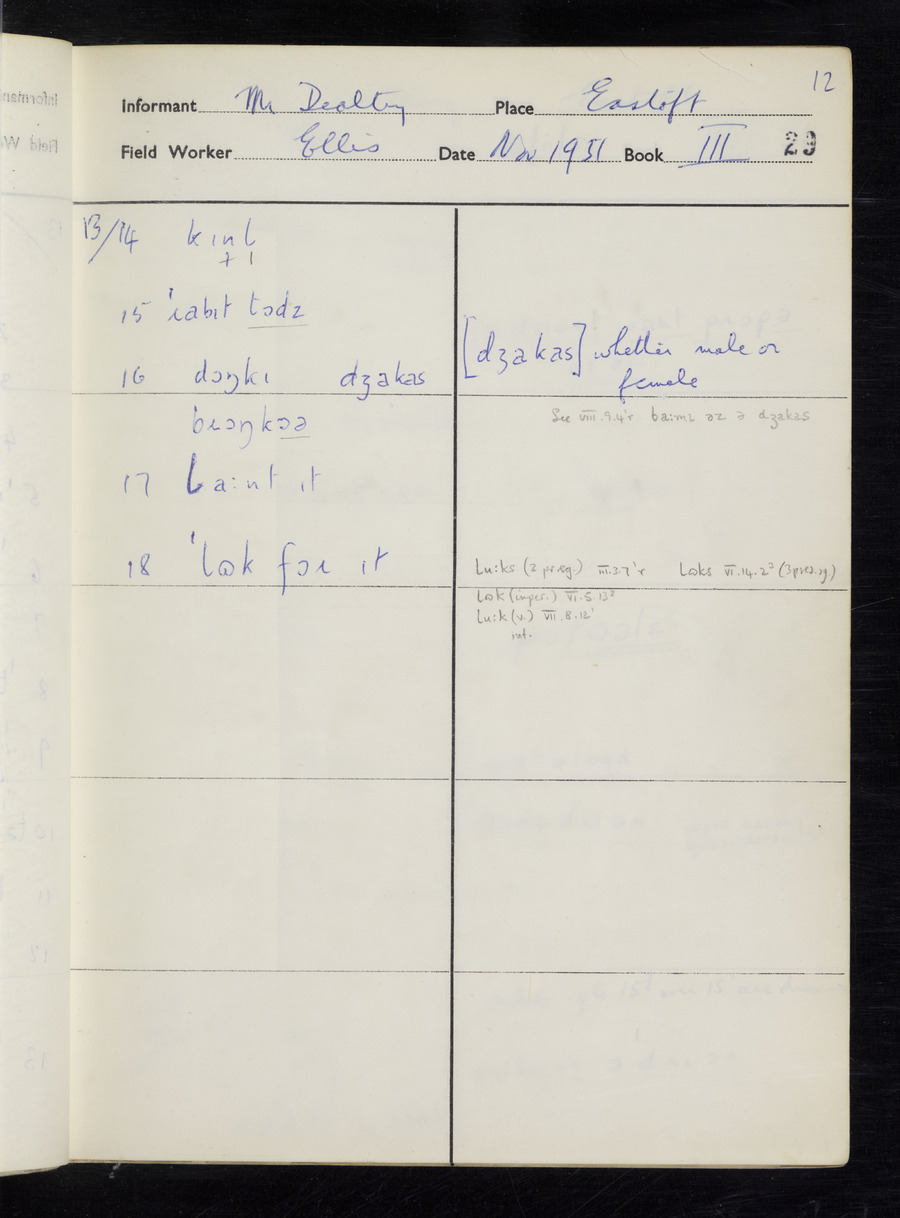 12
Informant Mr Dealtry Place Eastoft
Field Worker Ellis Date Nov 1951 Book III 29
13/14 kɪnl
15 'ɹabɪt
16 dɔŋkɪ dʒakas [dʒakas] whether male or
female
bɹɔŋkəə See VIII.9.4'r
17 baːnt it
18 'lɷk fɔɹ ɪt
luːks (2 pr.sg.) III.3.7'r lɷks VI.14.2² (3 pres.sg)
lɷk (imper.) VI.5.13²
luːk (v.) VII.8.12'
inf.